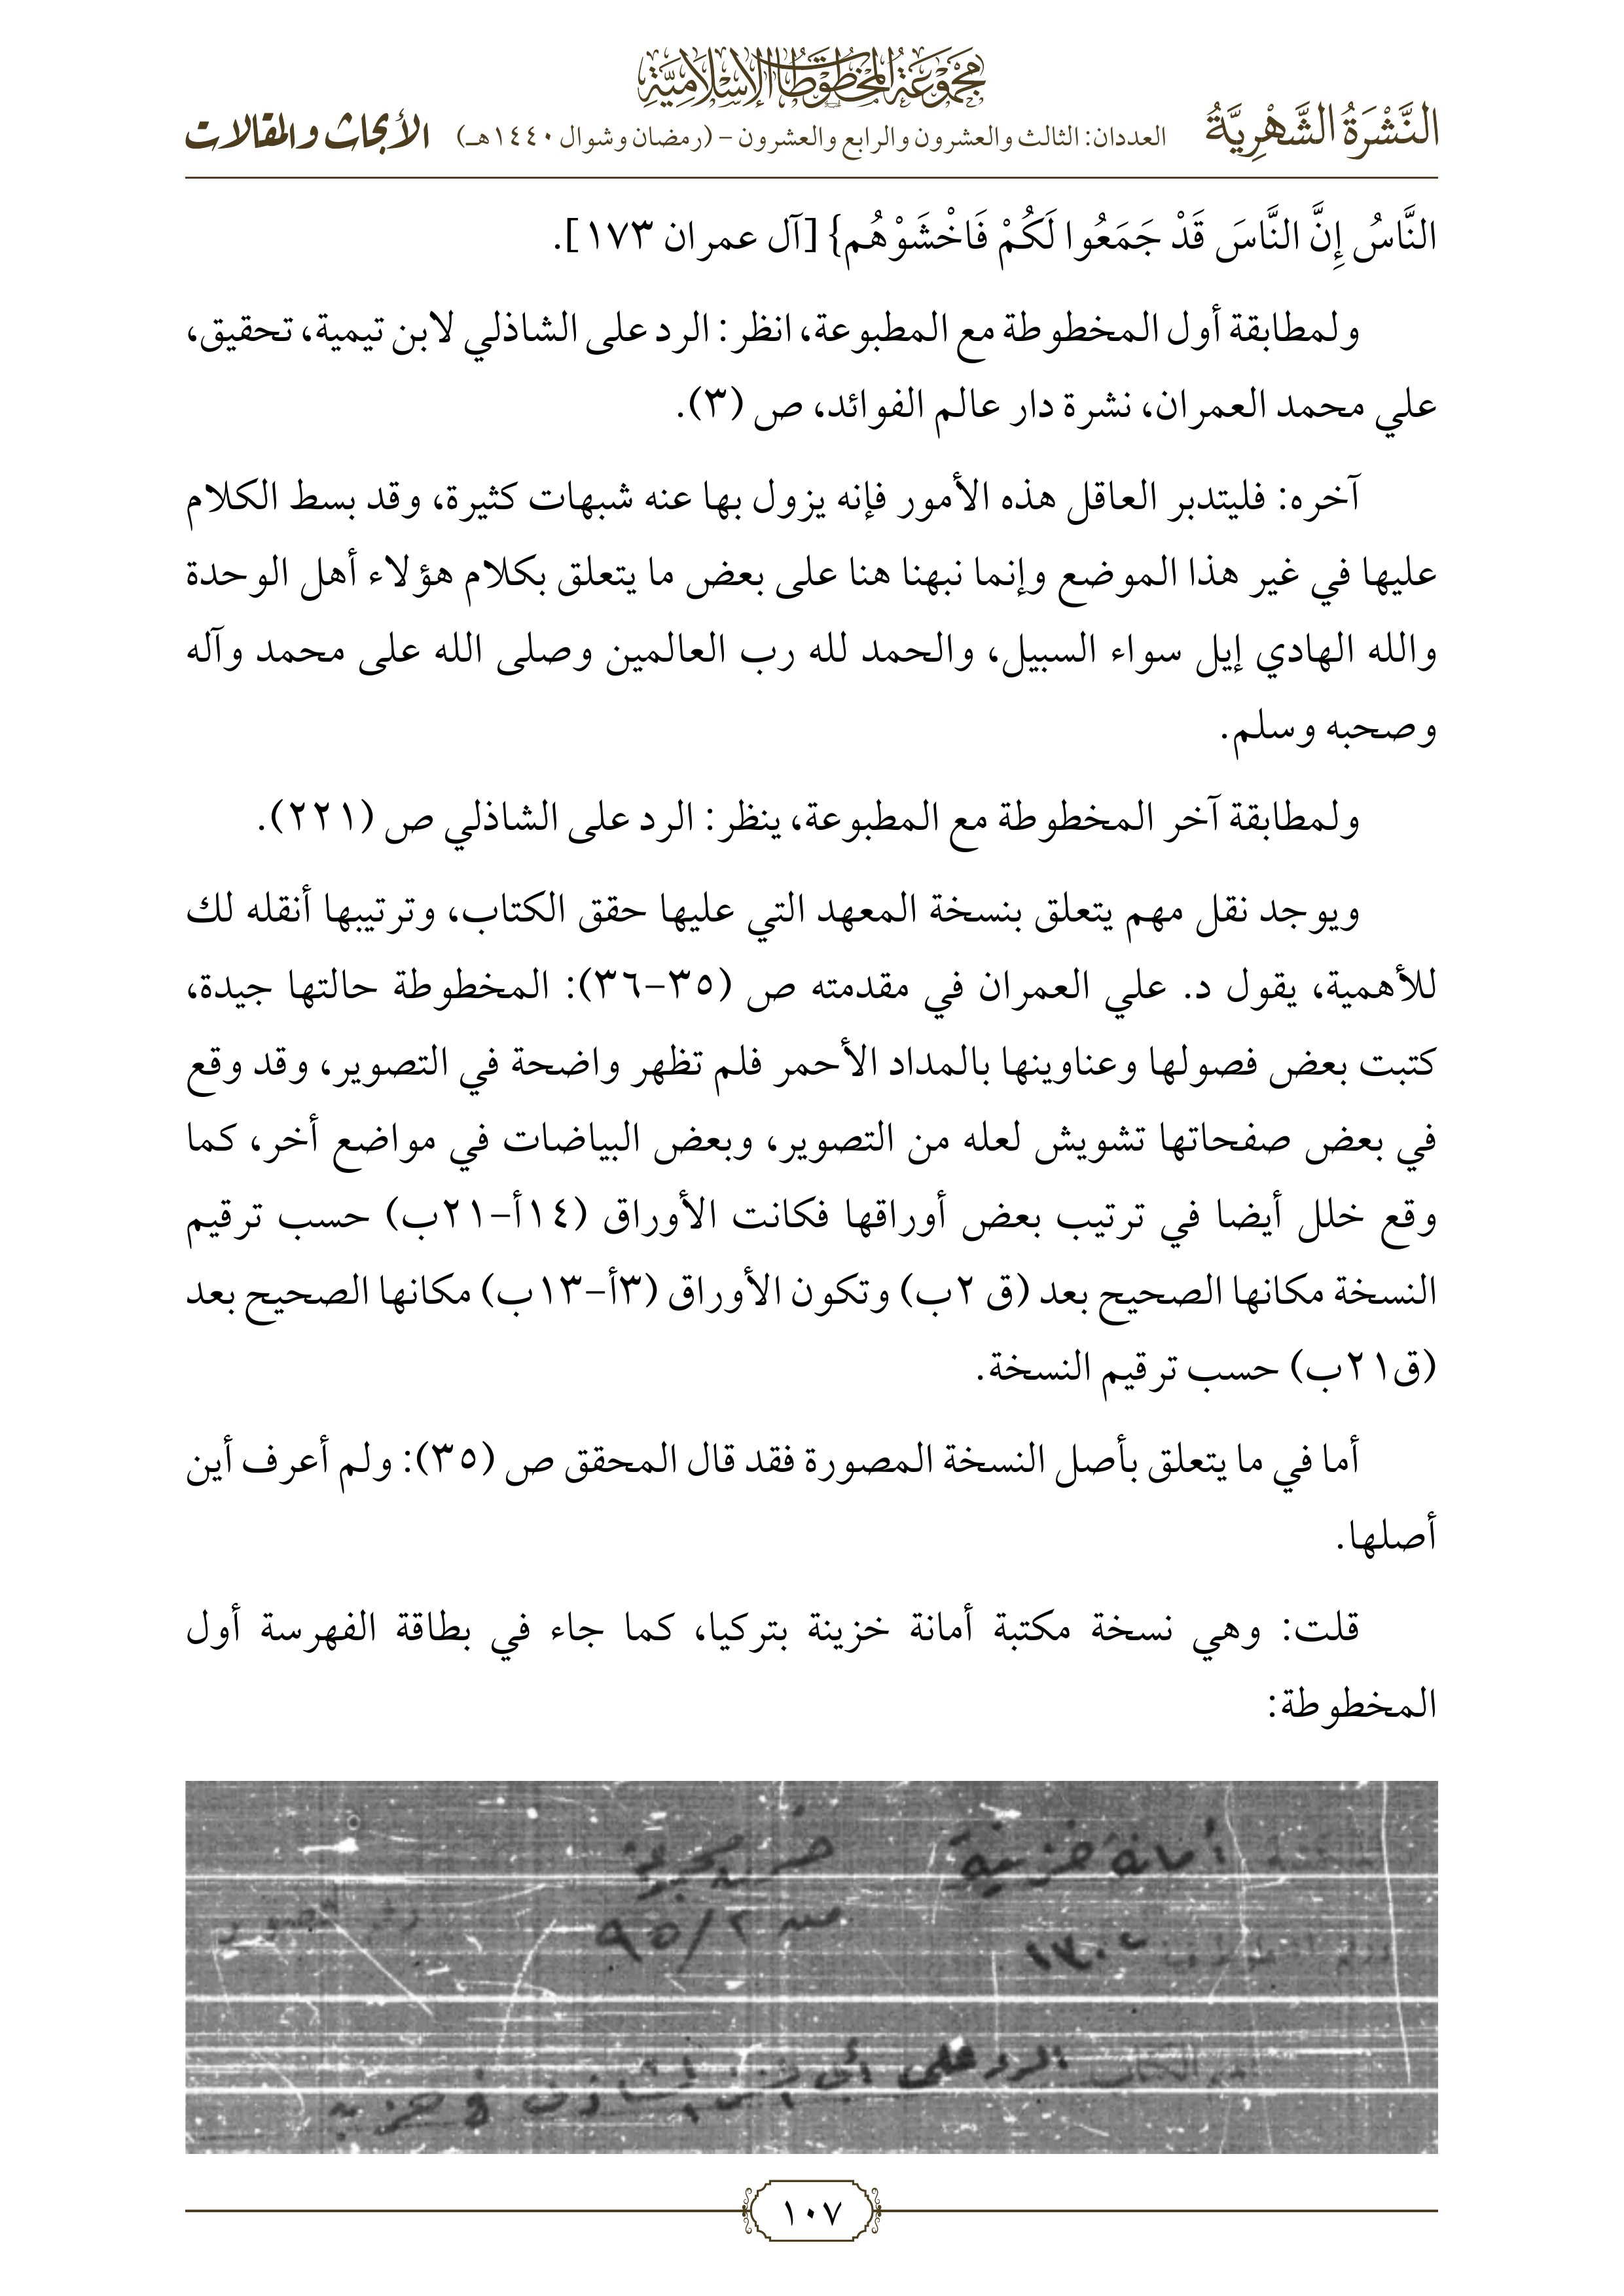 مجموعة المخطوطات الإسلامية
النَّشْرَةُ الشَّهْرِيَّةُ العددان: الثالث والعشرون والرابع والعشرون – (رمضان وشوال ١٤٤٠هـ) الأبحاث والمقالات
النَّاسُ إِنَّ النَّاسَ قَدْ جَمَعُوا لَكُمْ فَاخْشَوْهُم} [آل عمران ١٧٣].
ولمطابقة أول المخطوطة مع المطبوعة، انظر: الرد على الشاذلي لابن تيمية، تحقيق،
علي محمد العمران، نشرة دار عالم الفوائد، ص (٣).
آخره: فليتدبر العاقل هذه الأمور فإنه يزول بها عنه شبهات كثيرة، وقد بسط الكلام
عليها في غير هذا الموضع وإنما نبهنا هنا على بعض ما يتعلق بكلام هؤلاء أهل الوحدة
والله الهادي إيل سواء السبيل، والحمد لله رب العالمين وصلى الله على محمد وآله
وصحبه وسلم.
ولمطابقة آخر المخطوطة مع المطبوعة، ينظر: الرد على الشاذلي ص (٢٢١).
ويوجد نقل مهم يتعلق بنسخة المعهد التي عليها حقق الكتاب، وترتيبها أنقله لك
للأهمية، يقول د. علي العمران في مقدمته ص (٣٥–٣٦): المخطوطة حالتها جيدة،
كتبت بعض فصولها وعناوينها بالمداد الأحمر فلم تظهر واضحة في التصوير، وقد وقع
في بعض صفحاتها تشويش لعله من التصوير، وبعض البياضات في مواضع أخر، كما
وقع خلل أيضا في ترتيب بعض أوراقها فكانت الأوراق (١٤أ–٢١ب) حسب ترقيم
النسخة مكانها الصحيح بعد (ق ٢ب) وتكون الأوراق (٣أ–١٣ب) مكانها الصحيح بعد
(ق٢١ب) حسب ترقيم النسخة.
أما في ما يتعلق بأصل النسخة المصورة فقد قال المحقق ص (٣٥): ولم أعرف أين
أصلها.
قلت: وهي نسخة مكتبة أمانة خزينة بتركيا، كما جاء في بطاقة الفهرسة أول
المخطوطة:
أمانة خزينة
الرد على أبي الشاذلي في حزبه
١٠٧